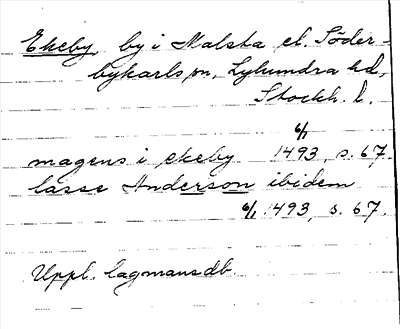 Ekeby, by i Malsta el. Söder-
bykarls sn, Lyhundra hd,
Stockh. l.
magens i ekeby 6/1 1493, s. 67.
lasse Anderson ibidem
6/1 1493, s. 67.
Uppl. lagmansdb.